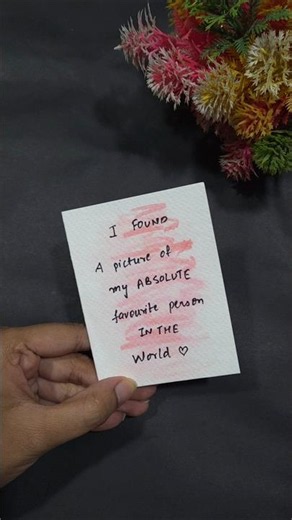 I FOUND
A picture of
my ABSOLUTE
favourite person
IN THE
World ♡